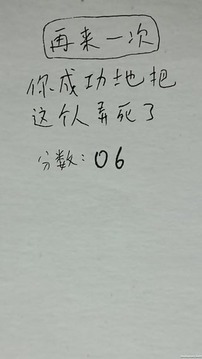 再来一次
你成功地把
这个人弄死了
分数:06